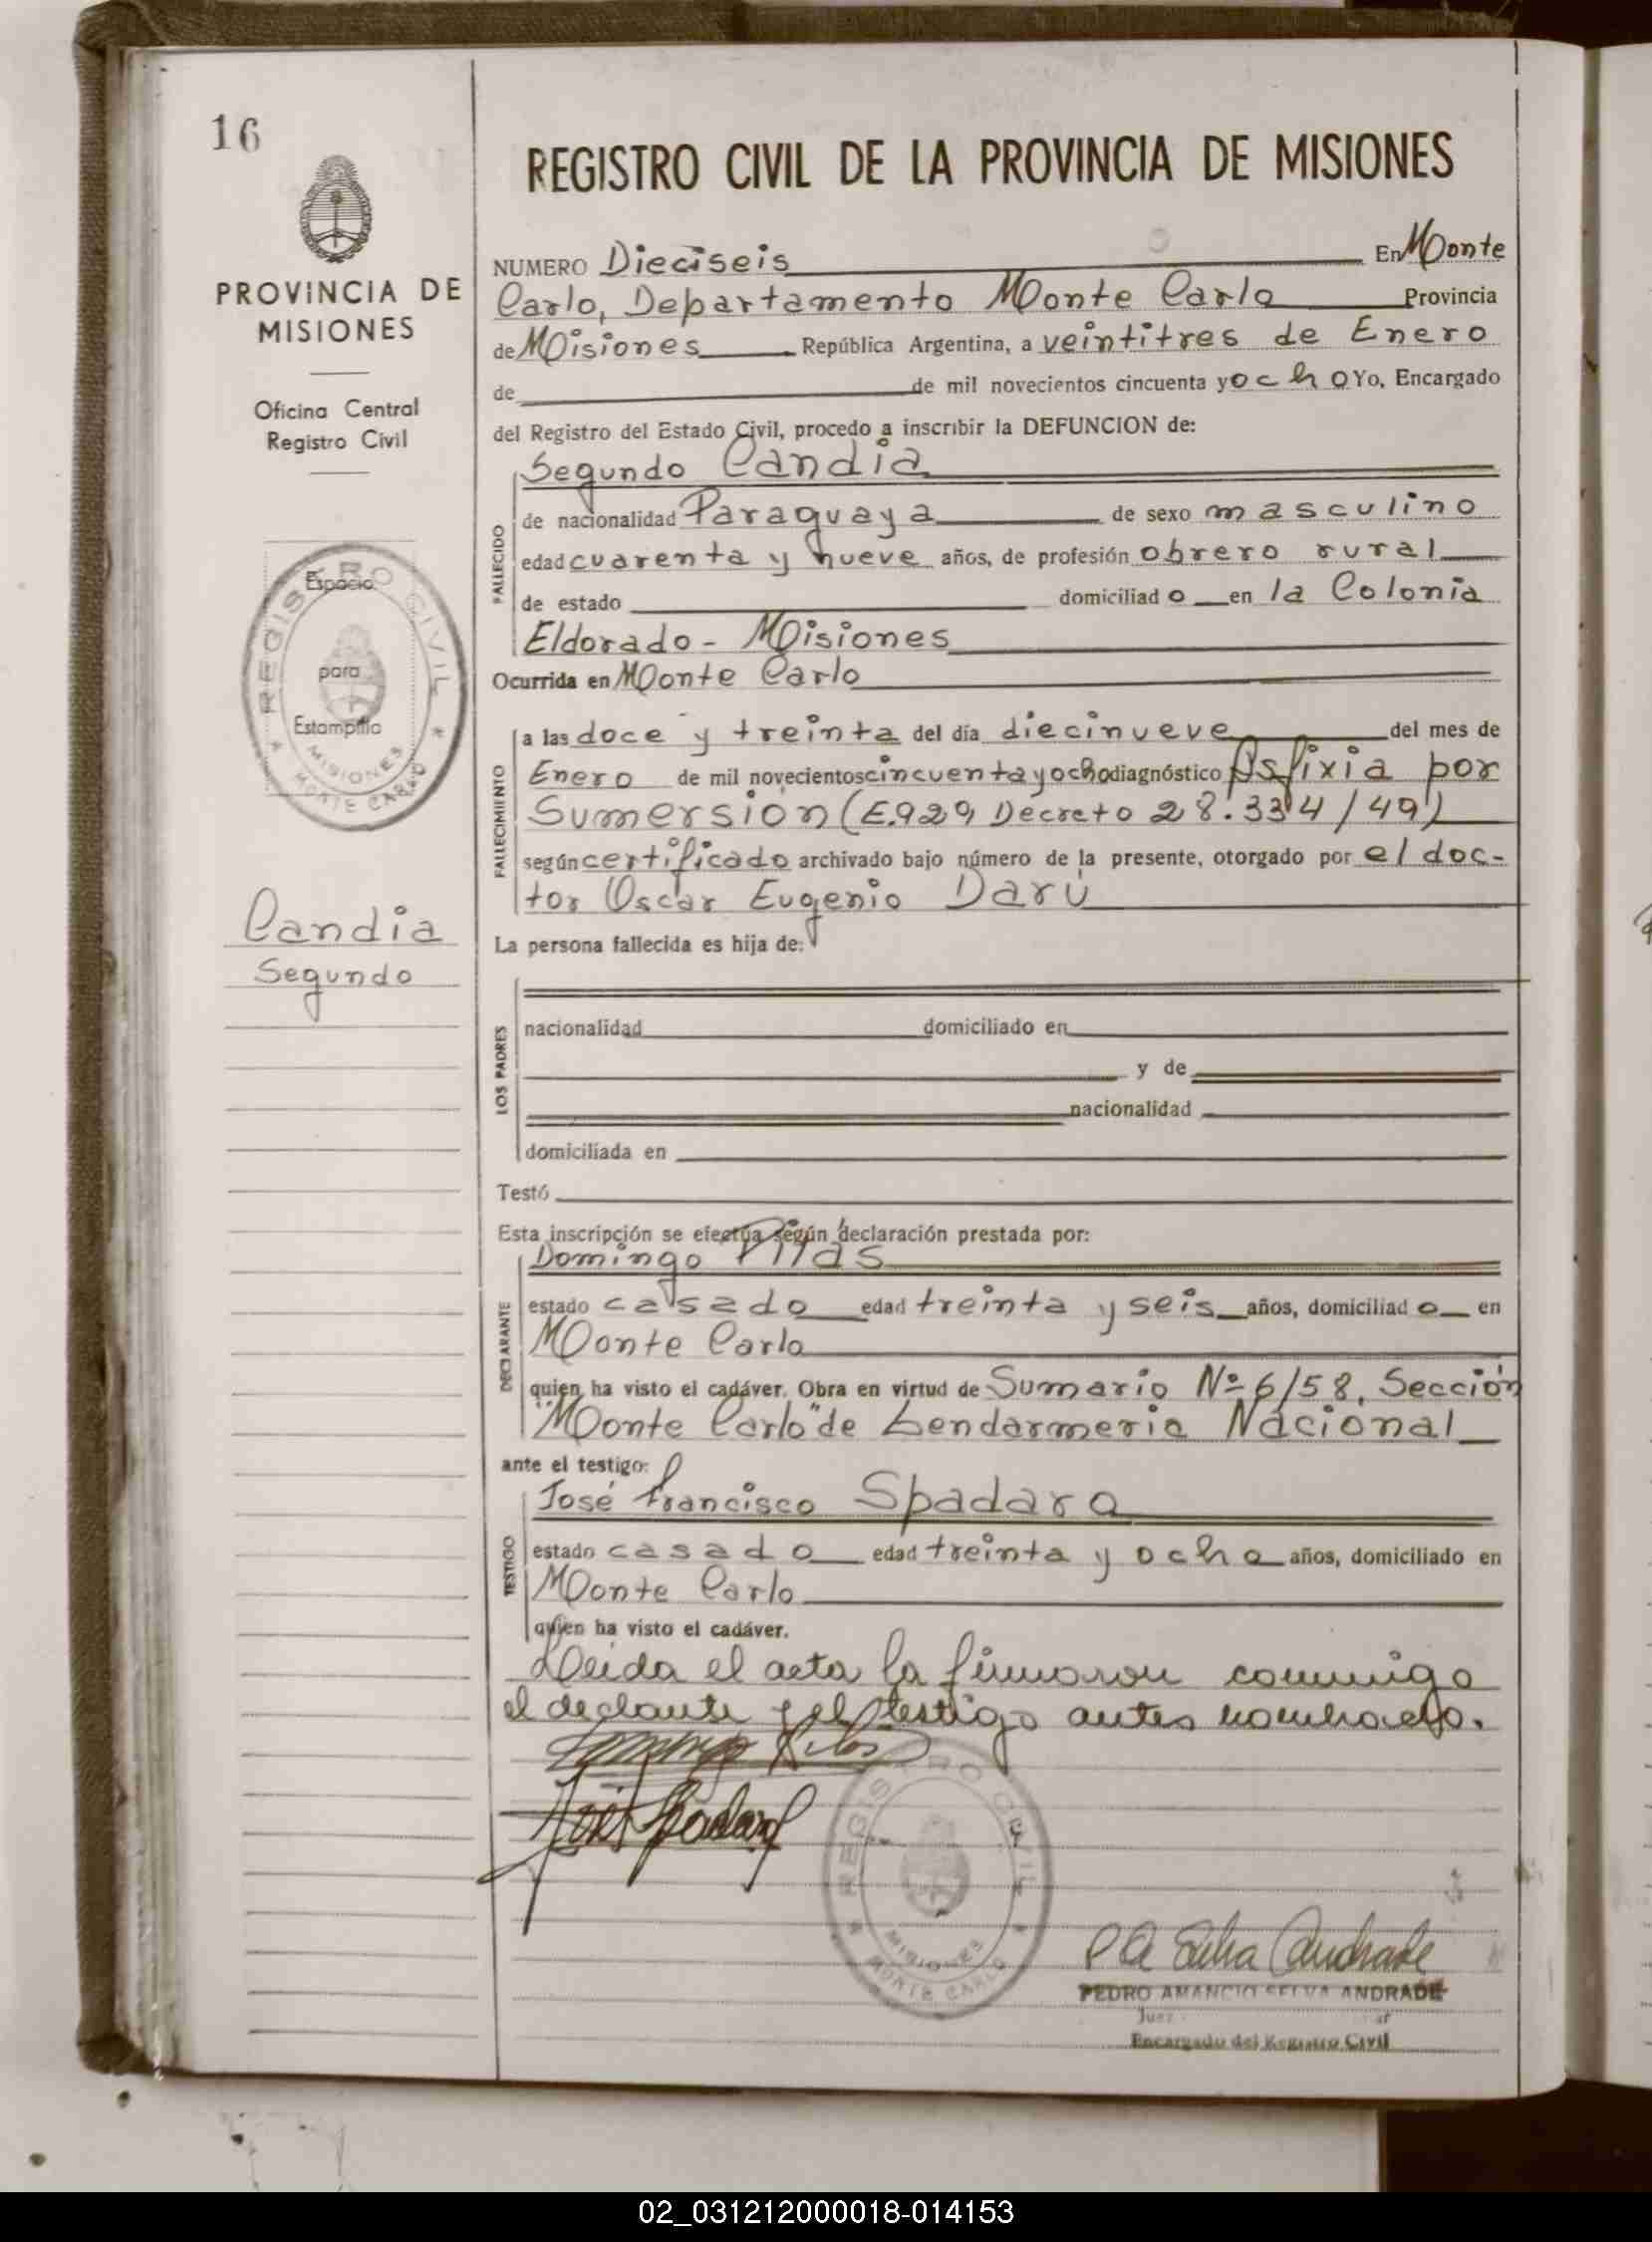 16
PROVINCIA DE
MISIONES
Oficina Central
Registro Civil
Espacio
para
Estampilla
REGISTRO CIVIL
MISIONES
MONTE CARLO
Candia
Segundo
REGISTRO CIVIL DE LA PROVINCIA DE MISIONES
NUMERO Dieciseis En Monte
Carlo, Departamento Monte Carlo Provincia
de Misiones República Argentina, a veintitres de Enero
de de mil novecientos cincuenta y ocho Yo, Encargado
del Registro del Estado Civil, procedo a inscribir la DEFUNCION de:
Segundo Candia
FALLECIDO
de nacionalidad Paraguaya de sexo masculino
edad cuarenta y nueve años, de profesión obrero rural
de estado domiciliado en la Colonia
Eldorado - Misiones
Ocurrida en Monte Carlo
FALLECIMIENTO
a las doce y treinta del día diecinueve del mes de
Enero de mil novecientos cincuenta y ocho diagnóstico Asfixia por
Sumersión (E.929, Decreto 28.334/49)
según certificado archivado bajo número de la presente, otorgado por el doc-
tor Oscar Eugenio Darú
La persona fallecida es hija de:
LOS PADRES
nacionalidad domiciliado en
y de
nacionalidad
domiciliada en
Testó
Esta inscripción se efectúa según declaración prestada por:
Domingo
DECLARANTE
estado casado edad treinta y seis años, domiciliado en
Monte Carlo
quien ha visto el cadáver. Obra en virtud de Sumario Nº 6/58, Sección
"Monte Carlo" de Gendarmeria Nacional
ante el testigo:
José Francisco Spadaro
TESTIGO
estado casado edad treinta y ocho años, domiciliado en
Monte Carlo
quien ha visto el cadáver.
Leida el acta la firmaron conmigo
el declante y el testigo antes nombrado.
REGISTRO CIVIL
MISIONES
MONTE CARLO
P A Selva Andrade
PEDRO AMANCIO SELVA ANDRADE
Juez
Encargado del Registro Civil
02_031212000018-014153